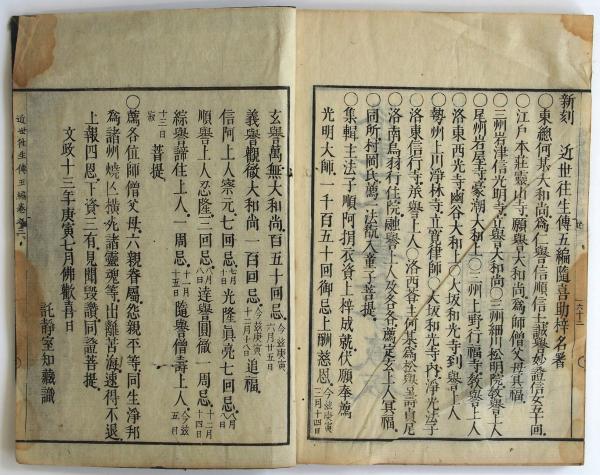 新刻　近世往生傳五編隨喜助梓名署
○東總何某大和尚爲仁譽信順信士誠譽妙證信女五十回
○江戸本莊靈山寺願譽大和尚爲師僧父母冥福
○三州岩津信光明寺立譽大和尚○三州細川松明院教譽上人
○尾州岩屋寺豪潮大和上○三州上野行福寺教譽上人
洛東西光寺幽谷大和上○大坂和光寺到譽上人
勢州上川淨林寺立寛律師○大坂和光寺内淨光法子
○洛東信行寺承譽上人○洛西
洛南鳥羽行住院融譽上人及各各爲薦定玄上人冥福
○同所村岡氏薦一法孩入童子菩提
○集輯主法子順阿捐衣資上梓成就伏願奉薦
光明大師一千百五十回御忌上酬慈恩今茲庚寅三月十四日
玄譽萬無大和尚百五十回忌今茲庚寅六月廿五日
義譽觀徹大和尚一百回忌今茲庚寅十二月十八日追福
信阿上人宗元七回忌光隆眞亮七回忌
順譽上人忍隆三回忌達譽圓徹一周忌
綜譽諦住上人一周忌隨譽僧壽上人今茲五日
菩提
○薦各位師僧父母六親眷屬怨親平等同生淨邦
爲諸州燒亡横死諸靈魂等出離苦海速得不退
上報四恩下資三有見聞毀讃同證菩提
文政十三年庚寅七月佛歡喜日
託靜室知藏識
近世往生傳五編卷